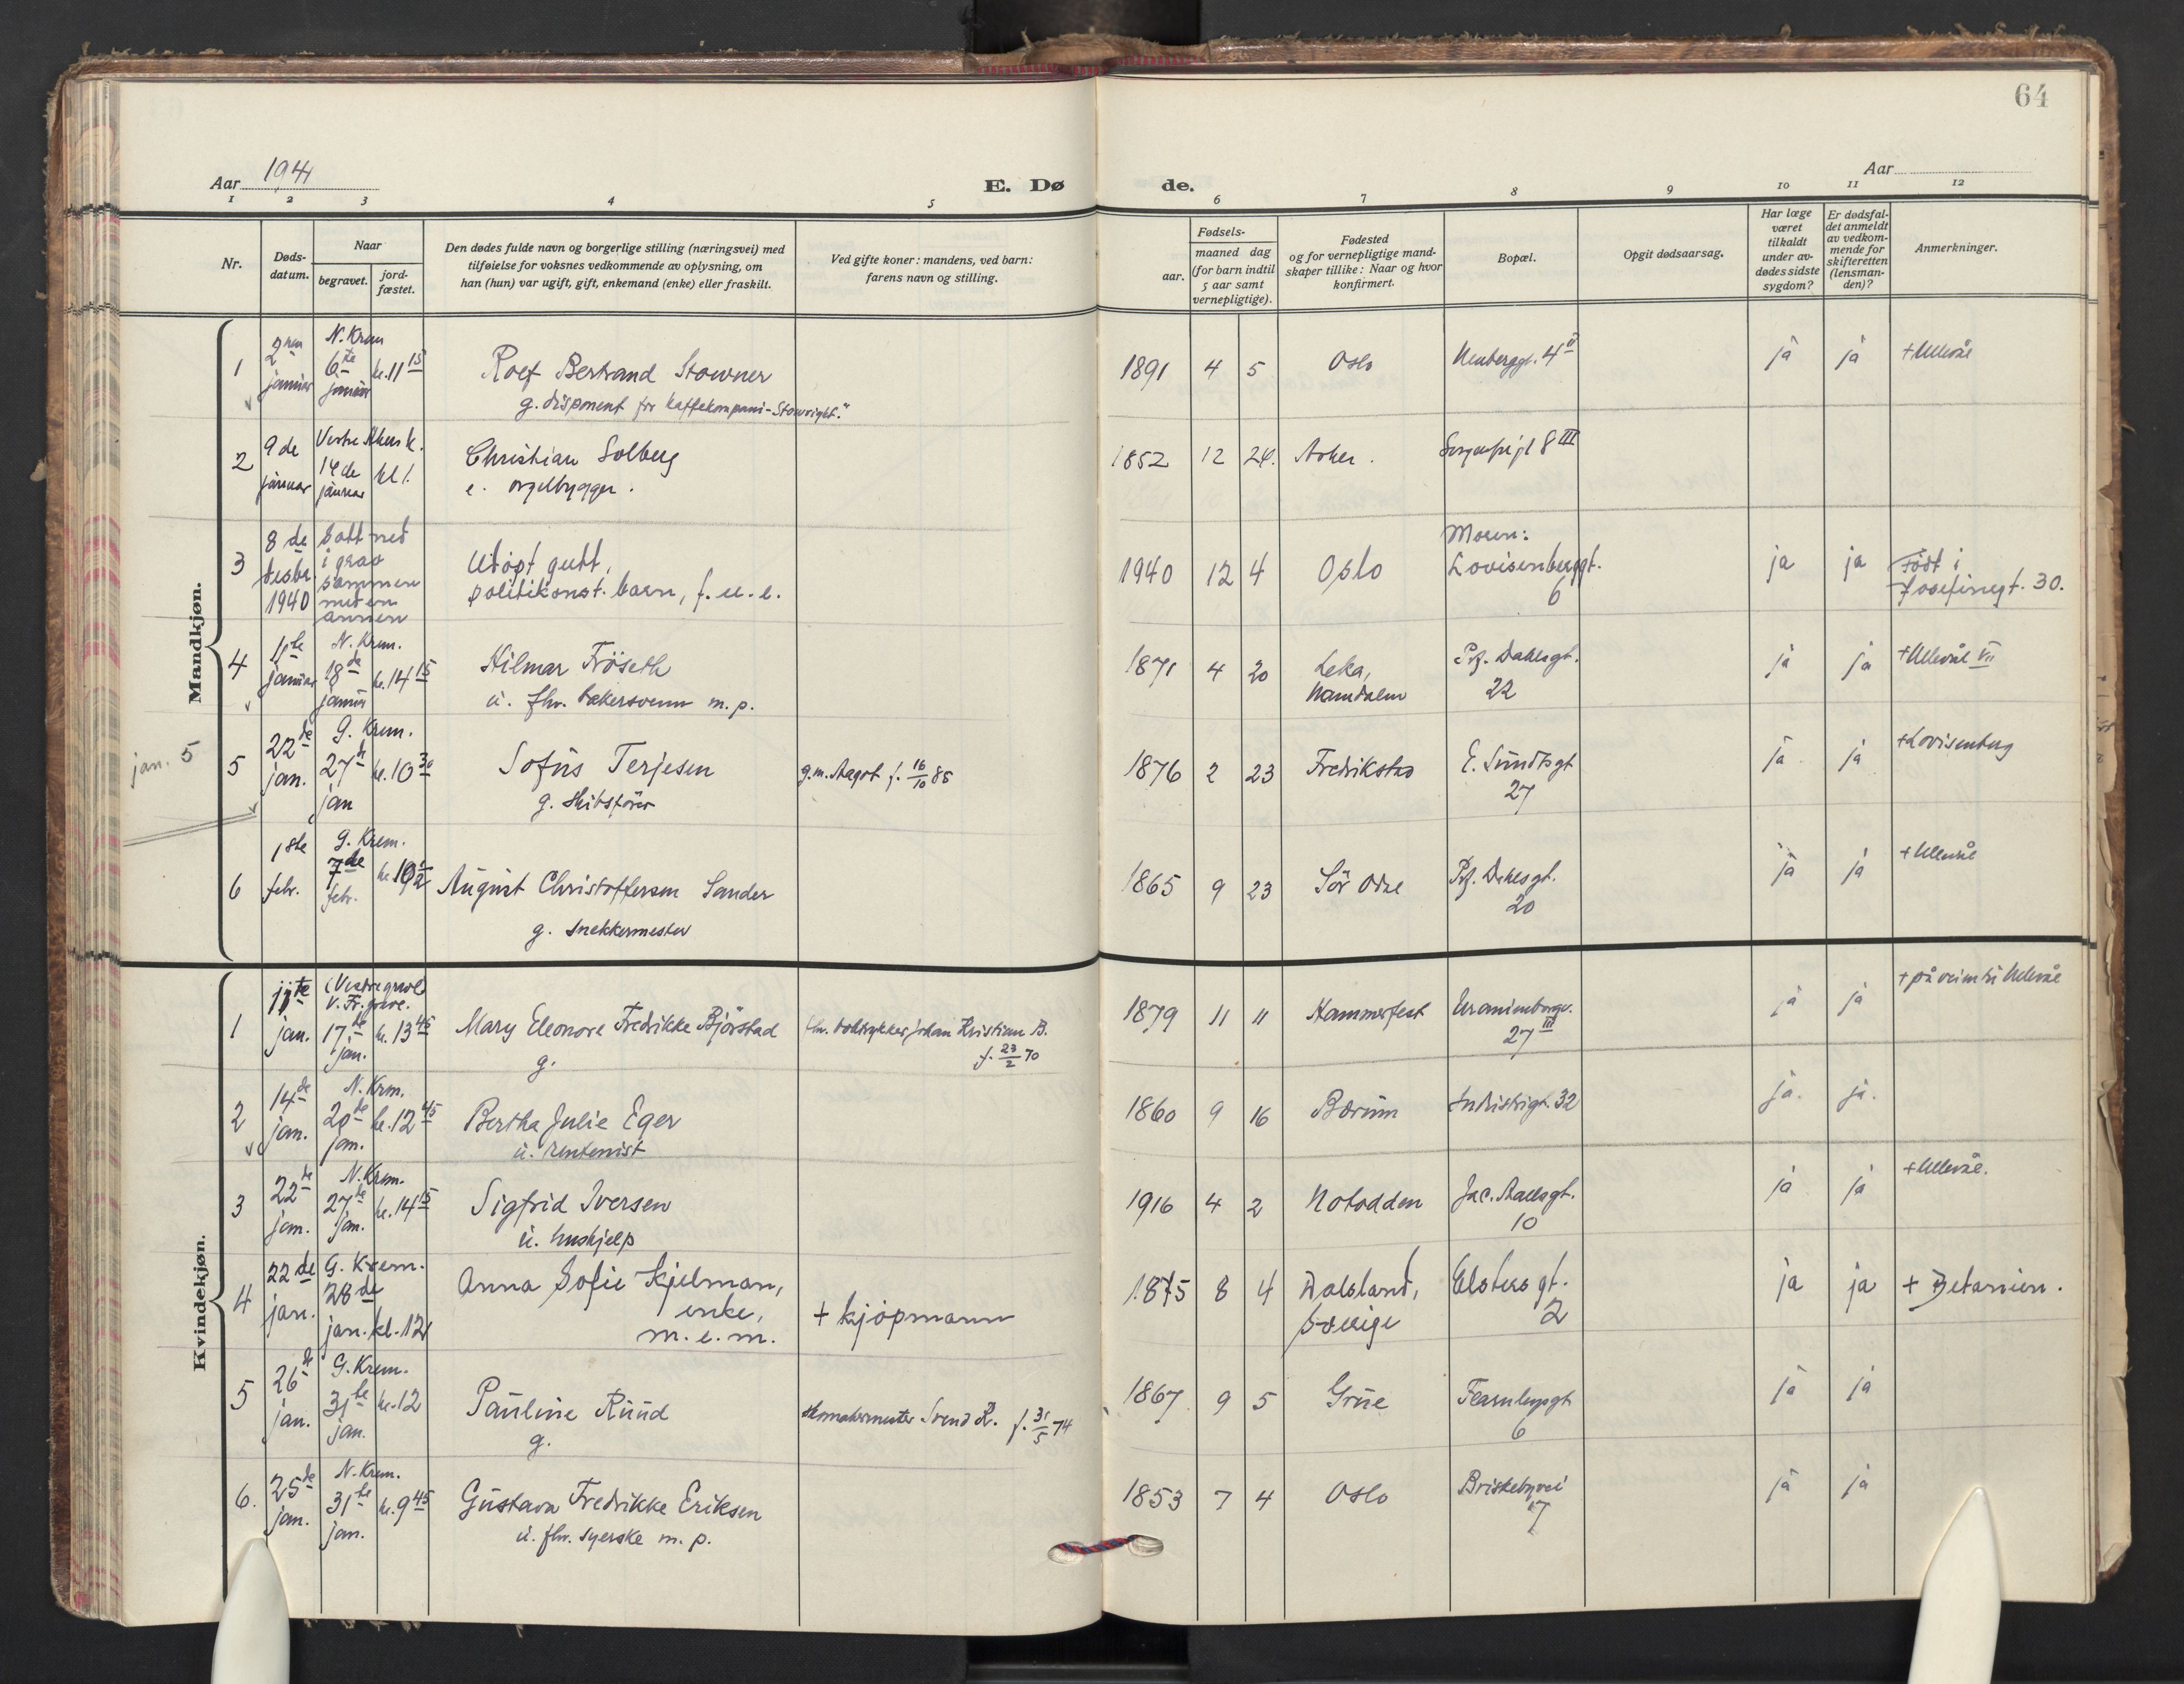 64
Aar 1941
E. Dø
de.
Aar
1 2 3 4 5 6 7 8 9 10 11 12
Nr.
Døds-
datum.
Naar
begravet.
jord-
fæstet.
Den dødes fulde navn og borgerlige stilling (næringsvei) med
tilføielse for voksnes vedkommende av oplysning, om
han (hun) var ugift, gift, enkemand (enke) eller fraskilt.
Ved gifte koner: mandens, ved barn:
farens navn og stilling.
Fødsels-
aar.
maaned dag
(for barn indtil
5 aar samt
vernepligtige).
Fødested
og for vernepligtige mand-
skaper tillike: Naar og hvor
konfirmert.
Bopæl.
Opgit dødsaarsag.
Har læge
været
tilkaldt
under av-
dødes sidste
sygdom?
Er dødsfal-
det anmeldt
av vedkom-
mende for
skifteretten
(lensman-
den)?
Anmerkninger.
Mandkjøn.
1
2 januar
N. Krem
6te januar
kl. 11 15
Rolf Bertrand Stowner
g. disponent for kaffekompani
1891 4 5
Oslo
4 II
ja ja
+ Ullevål
2
9de januar
Vestre Akers k.
14de januar
kl 1.
Christian Solberg
e. orgelbygger.
1852 12 24.
Asker.
8 III
3
8de desbr. 1940
Satt ned
i grav
sammen
med en
annen
Udøpt gutt,
politikonst. barn, f. u. e.
1940 12 4
Oslo
Moren:
Lovisenberggt.
6
ja ja
Født i
Josefinegt. 30.
4
januar
N. Krem.
18de januar
kl. 14 15
Hilmar Fröseth
u. fhv. bakersvenn m. p.
1871 4 20
Leka,
Namdalen
Prf. Dahlsgt.
22
ja ja
+ Ullevål VII
jan. 5
5
22de jan.
G. Krem.
27de jan
kl. 10 30
Sofus Terjesen
g. skibsfører
g.m. Aagot f. 16/10 85
1876 2 23
Fredrikstad
E. Sundtsgt
27
ja ja
+ Lovisenberg
6
1ste febr.
G. Krem.
7de febr.
August Christoffersen Sander
g. snekkermester
1865 9 23
Sör Odal
Prf. Dahlsgt.
20
ja ja
+ Ullevål
Kvindekjøn.
1
11te jan.
(Vestre gravl.
V. Fr. grave.
17de jan.
kl. 13 45
Mary Eleonore Fredrikke Björstad
g.
fhv. boktrykker Johan Kristian B.
f. 23/2 70
1879 11 11
Hammerfest
Uranienborgv.
27 III
ja ja
+ på vei til Ullevål
2
14de jan.
N. Krem.
20de jan.
kl. 12 45
Bertha Julie Eger
u. rentenist
1860 9 16
Bærum
Industrigt. 32
ja. ja.
3
22de jan.
N. Krem.
27de jan.
kl. 14 15
Sigfrid Iversen
u. hushjelp
1916 4 2
Notodden
Jac. Aallsgt.
10
ja ja
+ Ullevål.
4
22de jan.
G. Krem.
28de jan. kl. 12
Anna Sofie Kjelman,
enke,
m. e. m.
+ kjöpmann
1875 8 4
Dalsland,
Sverige
Elsters gt.
2
ja ja
+ Betanien.
5
26de jan.
G. Krem.
31te jan.
kl. 12
Pauline Ruud
g.
Skomakermester Svend R. f. 31/5 74
1867 9 5
Grue
Fearnleysgt
6
ja ja
6.
25de jan.
N. Krem.
31te jan.
kl. 9 45
Gustava Fredrikke Eriksen
u. fhv. syerske m. p.
1853 7 4
Oslo
Briskebyvei
ja ja